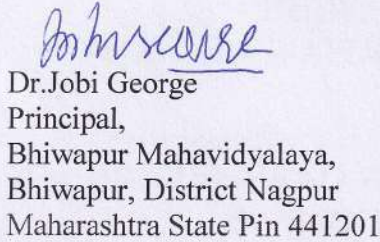 Dr.Jobi George
Principal,
Bhiwapur Mahavidyalaya,
Bhiwapur, District Nagpur
Maharashtra State Pin 441201